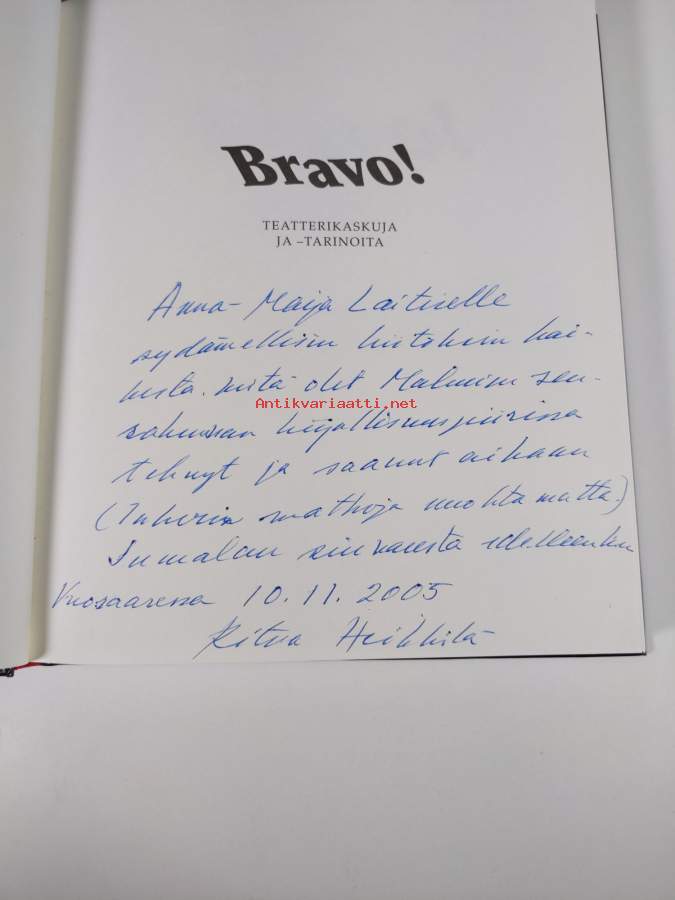 Bravo!
TEATTERIKASKUJA
JA –TARINOITA
Anna-Maija Laitiselle
sydämellisin kiitoksin kai-
kesta, mitä olet Malmin seu-
Antikvariaatti.net
rakunnan kirjallisuuspiirissä
tehnyt ja saanut aikaan
matkoja unohtamatta.)
Jumalan siunausta edelleenkin
Vuosaaressa 10.11.2005
Ritva Heikkilä